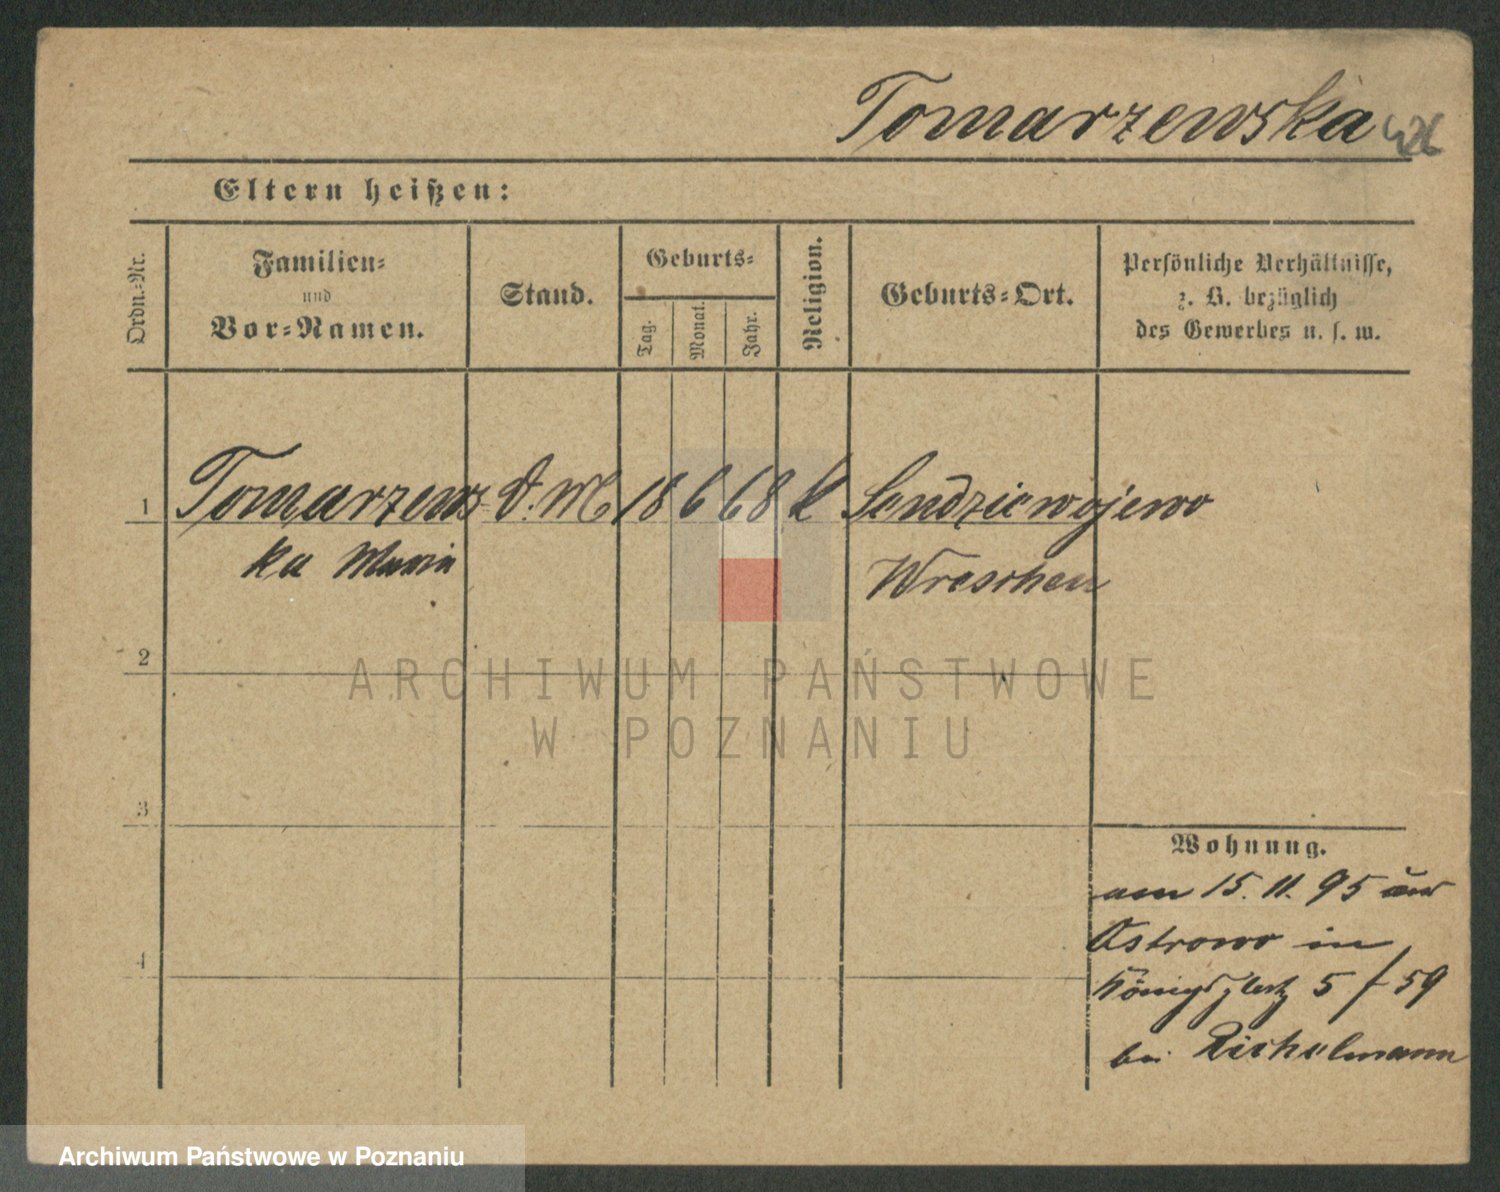 Tomarzewska
Eltern heißen:
Ordn.-Nr.
Familien-
und
Vor-Namen.
Stand.
Geburts-
Tag.
Monat.
Jahr.
Religion.
Geburts-Ort.
Persönliche Verhältnisse,
z. B. bezüglich
des Gewerbes u. s. w.
1
Tomarzews- D. M. 18 6 68 k Sendziewojewo
ka Maria
Wreschen
2
3
4
Wohnung.
am 15. 11. 95 aus
Ostrowo in
Königsplatz 5 / 59
bei Richelmann
ARCHIWUM PAŃSTWOWE
W POZNANIU
Archiwum Państwowe w Poznaniu